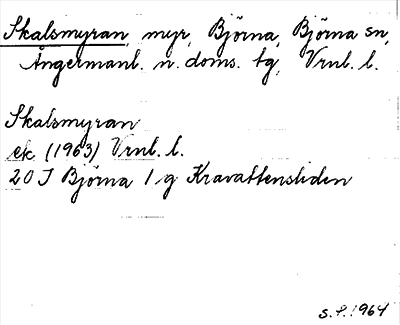 Skalsmyran, myr, Björna, Björna sn,
Ångermanl. n. doms. tg, Vrnl. l.
Skalsmyran
ek (1963) Vrnl. l.
20 J Björna 1 g Kravattensliden
S.P. 1964